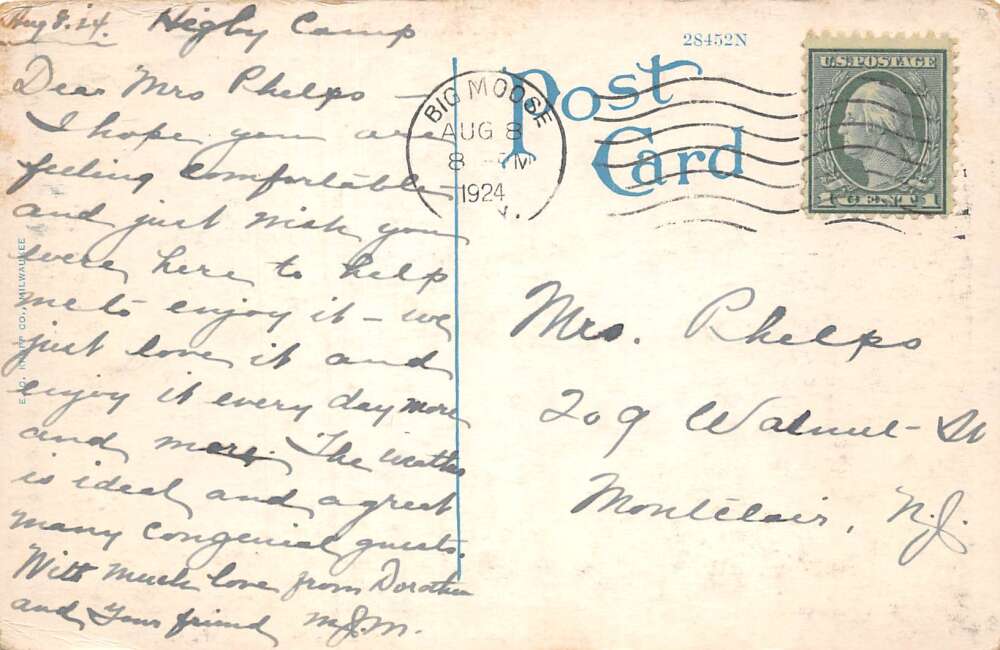 Aug 8. 24. Higby Camp
Dear Mrs Phelps –
I hope you are
feeling comfortable
and just wish you
were here to help
me to enjoy it – we
just love it and
enjoy it every day more
and more. The weather
is ideal and a great
many congenial guests.
With much love from Dorothea
and your friend M.J.M.
E. C. KROPP CO., MILWAUKEE
28452N
Post
Card
BIG MOOSE
AUG 8
8 M
1924
Y.
U.S. POSTAGE
1 CENT 1
Mrs. Phelps
209 Walnut St
Montclair, N.J.